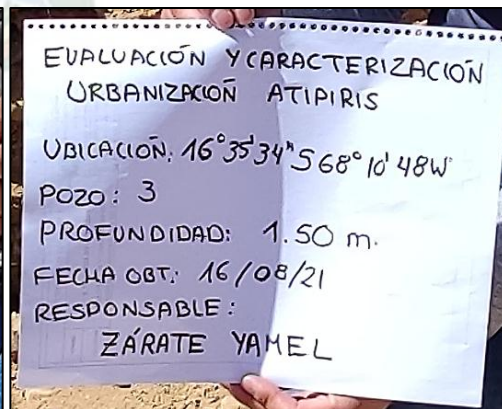 EVALUACIÓN Y CARACTERIZACIÓN
URBANIZACIOÑ ATIPIRIS
UBICACIÓN: 16°35'34"S 68°10'48W
POZO: 3
PROFUNDIDAD: 1.50 m.
FECHA OBT.: 16/08/21
RESPONSABLE:
ZÁRATE YAMEL